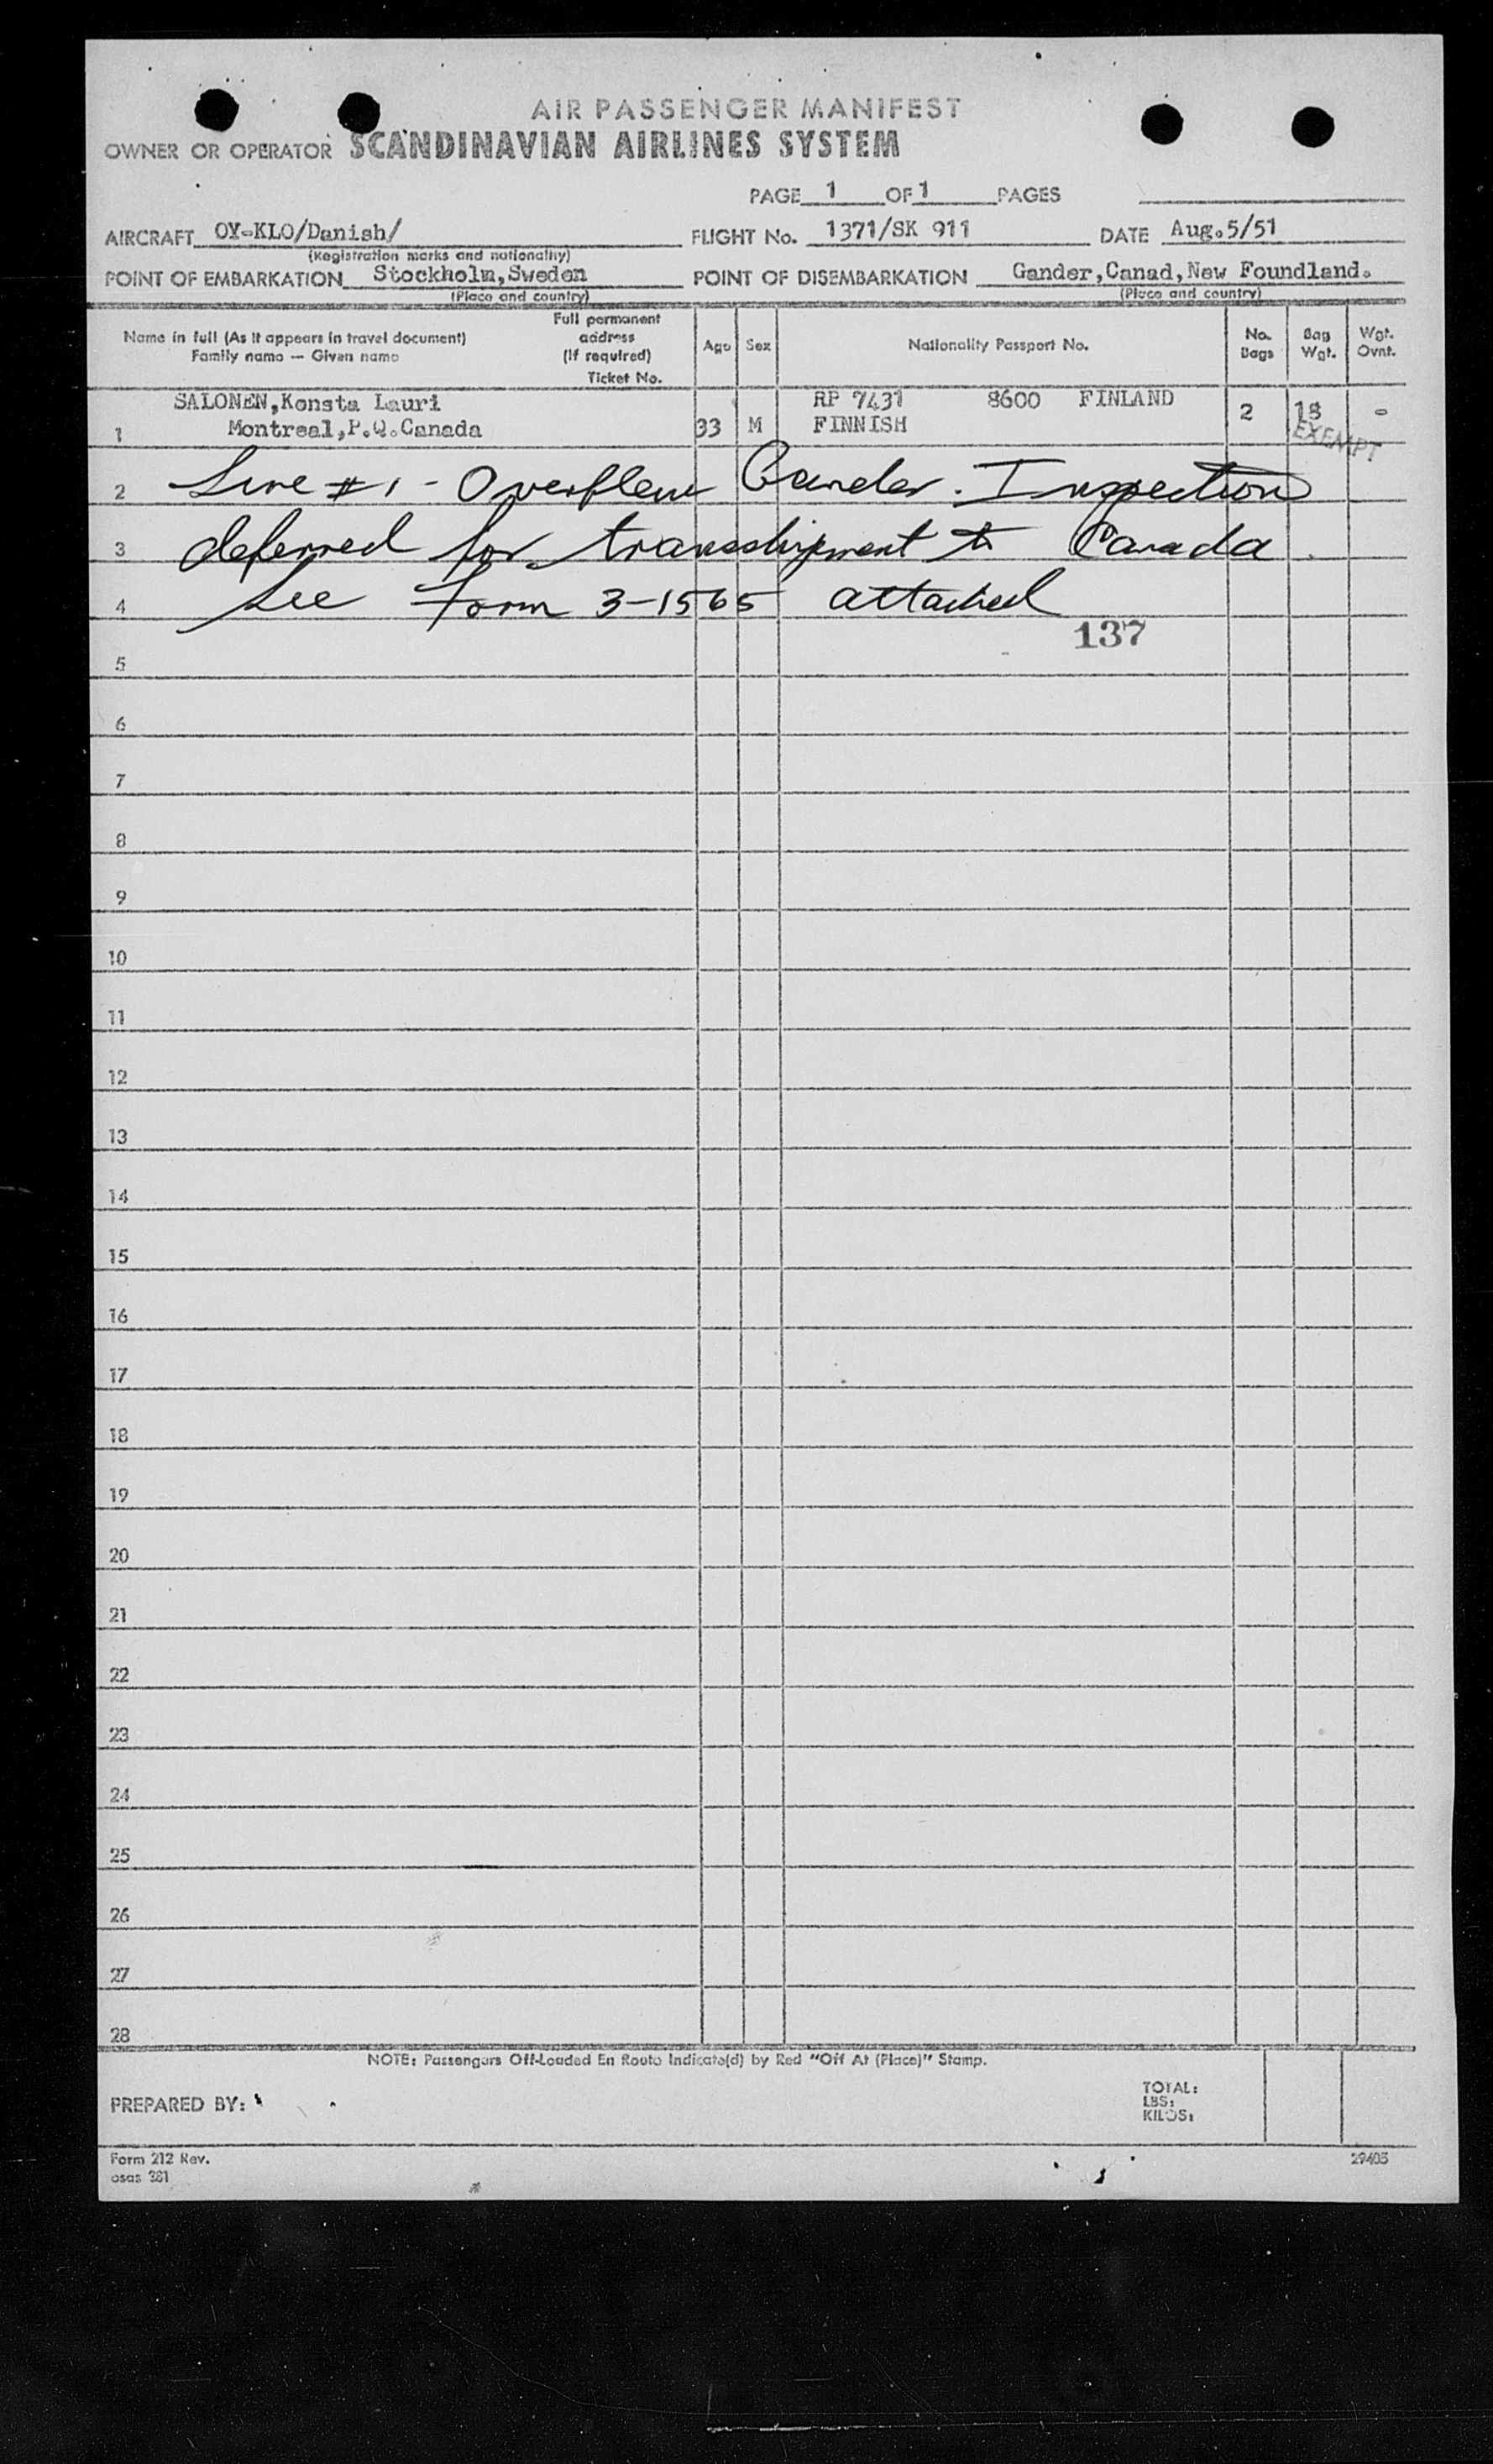 AIR PASSENGER MANIFEST
OWNER OR OPERATOR SCANDINAVIAN AIRLINES SYSTEM
PAGE 1 OF 1 PAGES
AIRCRAFT OY-KLO/Danish/ FLIGHT No. 1371/SK 911 DATE Aug.5/51
(Registration marks and nationality)
POINT OF EMBARKATION Stockholm,Sweden POINT OF DISEMBARKATION Gander,Canad,New Foundland.
(Place and country) (Place and country)
Name in full (As it appears in travel document)
Family name — Given name
Full permanent
address
(If required)
Ticket No.
Age
Sex
Nationality Passport No.
No.
Bags
Bag
Wgt.
Wgt.
Ovnt.
SALONEN,Konsta Lauri RP 7431 8600 FINLAND
1 Montreal,P.Q.Canada 33 M FINNISH 2 18 -
EXEMPT
2 Line # 1 - Overflew Gander. Inspection
3 deferred for transshipment to Canada.
4 See Form 3-1565 attached
137
5
6
7
8
9
10
11
12
13
14
15
16
17
18
19
20
21
22
23
24
25
26
27
28
NOTE: Passengers Off-Loaded En Route Indicate(d) by Red "Off At (Place)" Stamp.
PREPARED BY:
TOTAL:
LBS:
KILOS:
Form 212 Rev.
osas 281
29405